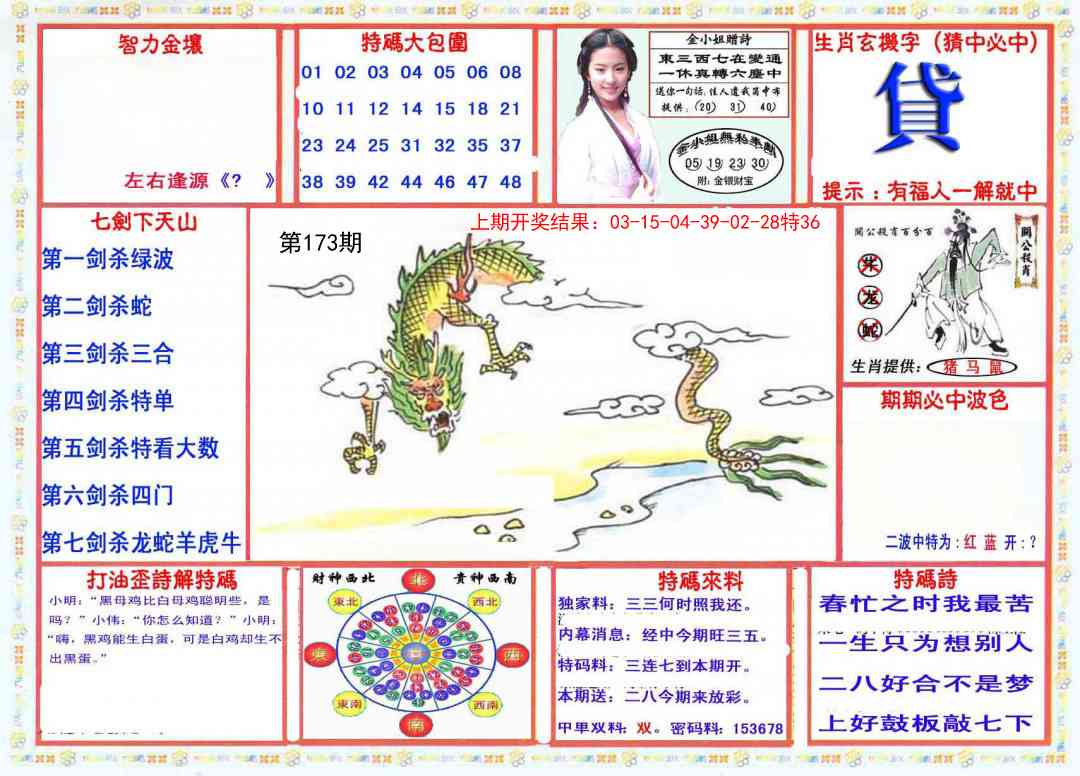 智力金壤
左右逢源《? 》
特碼大包圍
01 02 03 04 05 06 08
10 11 12 14 15 18 21
23 24 25 31 32 35 37
38 39 42 44 46 47 48
金小姐贈詩
東三西七在變通
一休真轉六塵中
送你一句話,佳人遺我蒟中布
提供:(20) 31) 40)
金小姐無私奉獻
05 19 23 30
附:金银财宝
生肖玄機字(猜中必中)
貸
提示:有福人一解就中
七劍下天山
第一剑杀绿波
第二剑杀蛇
第三剑杀三合
第四剑杀特单
第五剑杀特看大数
第六剑杀四门
第七剑杀龙蛇羊虎牛
上期开奖结果:03-15-04-39-02-28特36
第173期
關公殺肖百分百
關公殺肖
龙
蛇
生肖提供:猪 马 鼠
期期必中波色
二波中特为:红 蓝 开:?
打油歪詩解特碼
小明:“黑母鸡比白母鸡聪明些,是
吗?”小伟:“你怎么知道?”小明:
“嗨,黑鸡能生白蛋,可是白鸡却生不
出黑蛋。”
財神西北 貴神西南
北
東北 西北
東 西
東南 西南
南
特碼來料
独家料:三三何时照我还。
内幕消息:经中今期旺三五。
特码料:三连七到本期开。
本期送:二八今期来放彩。
中单双料:双。密码料:153678
特碼詩
春忙之时我最苦
一生只为想别人
二八好合不是梦
上好鼓板敲七下